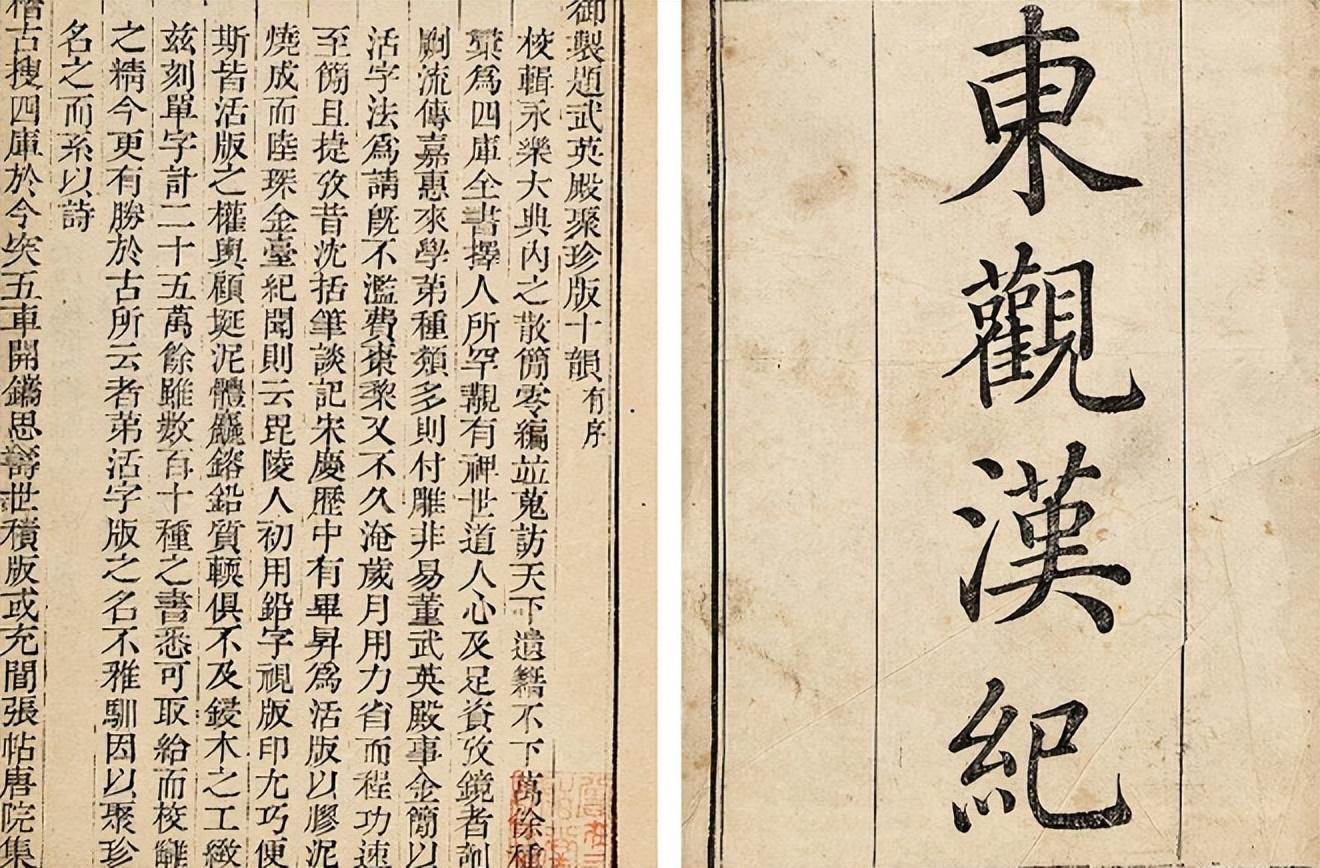 御製題武英殿聚珍版十韻有序
校輯永樂大典內之散簡零編並蒐訪天下遺籍不下萬餘種
彚為四庫全書擇人所罕覯有裨世道人心及足資攷鏡者剞
劂流傳嘉惠來學第種類多則付雕非易董武英殿事金簡以
活字法為請既不濫費棗棃又不久淹歲月用力省而程功速
至簡且捷攷昔沈括筆談記宋慶歷中有畢昇為活版以膠泥
燒成而陸深金臺紀聞則云毘陵人初用鉛字視版印尤巧便
斯皆活版之權輿顧埏泥體麤鎔鉛質輭俱不及鋟木之工緻
茲刻單字計二十五萬餘雖數百十種之書悉可取給而校讎
之精今更有勝於古所云者第活字版之名不雅馴因以聚珍
名之而系以詩
稽古搜四庫於今突五車開鐫思壽世積版或充閭張帖唐院集
東觀漢紀